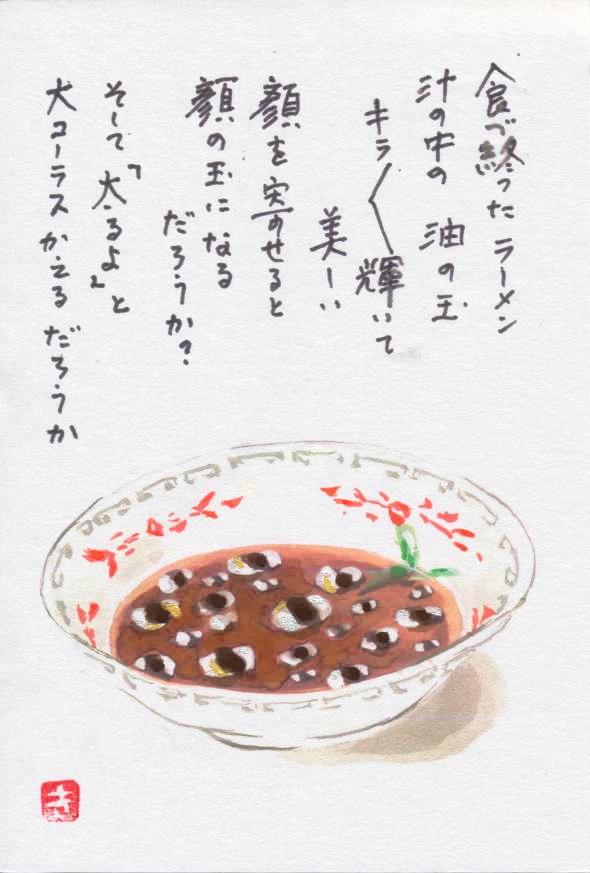 食べ終ったラーメン
汁の中の 油の玉
キラ〳〵輝いて
美しい
顔を寄せると
顔の玉になる
だろうか?
そして「太るよ」と
大コーラスかえるだろうか
き